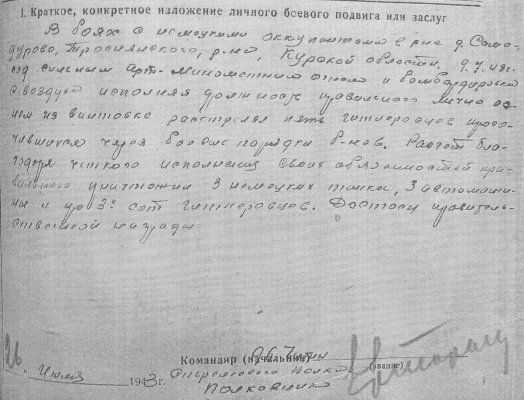 I. Краткое, конкретное изложение личного боевого подвига или заслуг
В боях с немецкими оккупантами в р-не д. Само-
дурово, Троснянского, р-на, Курской области. 9.7.43г.
под сильным арт-минометным огнем и бомбардировкой
с воздуха исполняя должность правильного лично ог-
нем из винтовки расстрелял пять гитлеровцев просо-
чившихся через боевые порядки б-нов. Расчет бла-
годаря четкого исполнения своих обязанностей пра-
вильного уничтожил 3 немецких танка, 3 автомаши-
ны и до 3х сот гитлеровцев. Достоин правитель-
ственной награды
Командир (начальник)
(звание)
26
" Июля 1943 г.
Стрелкового полка
Полковник